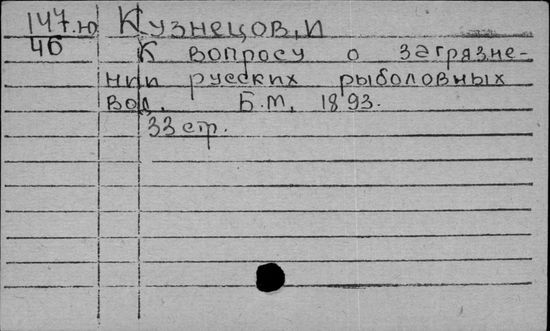 147.ю Кузнецов, И
46 К вопросу о загрязне-
нии русских рыболовных
вод. Б.М. 1893.
33 стр.